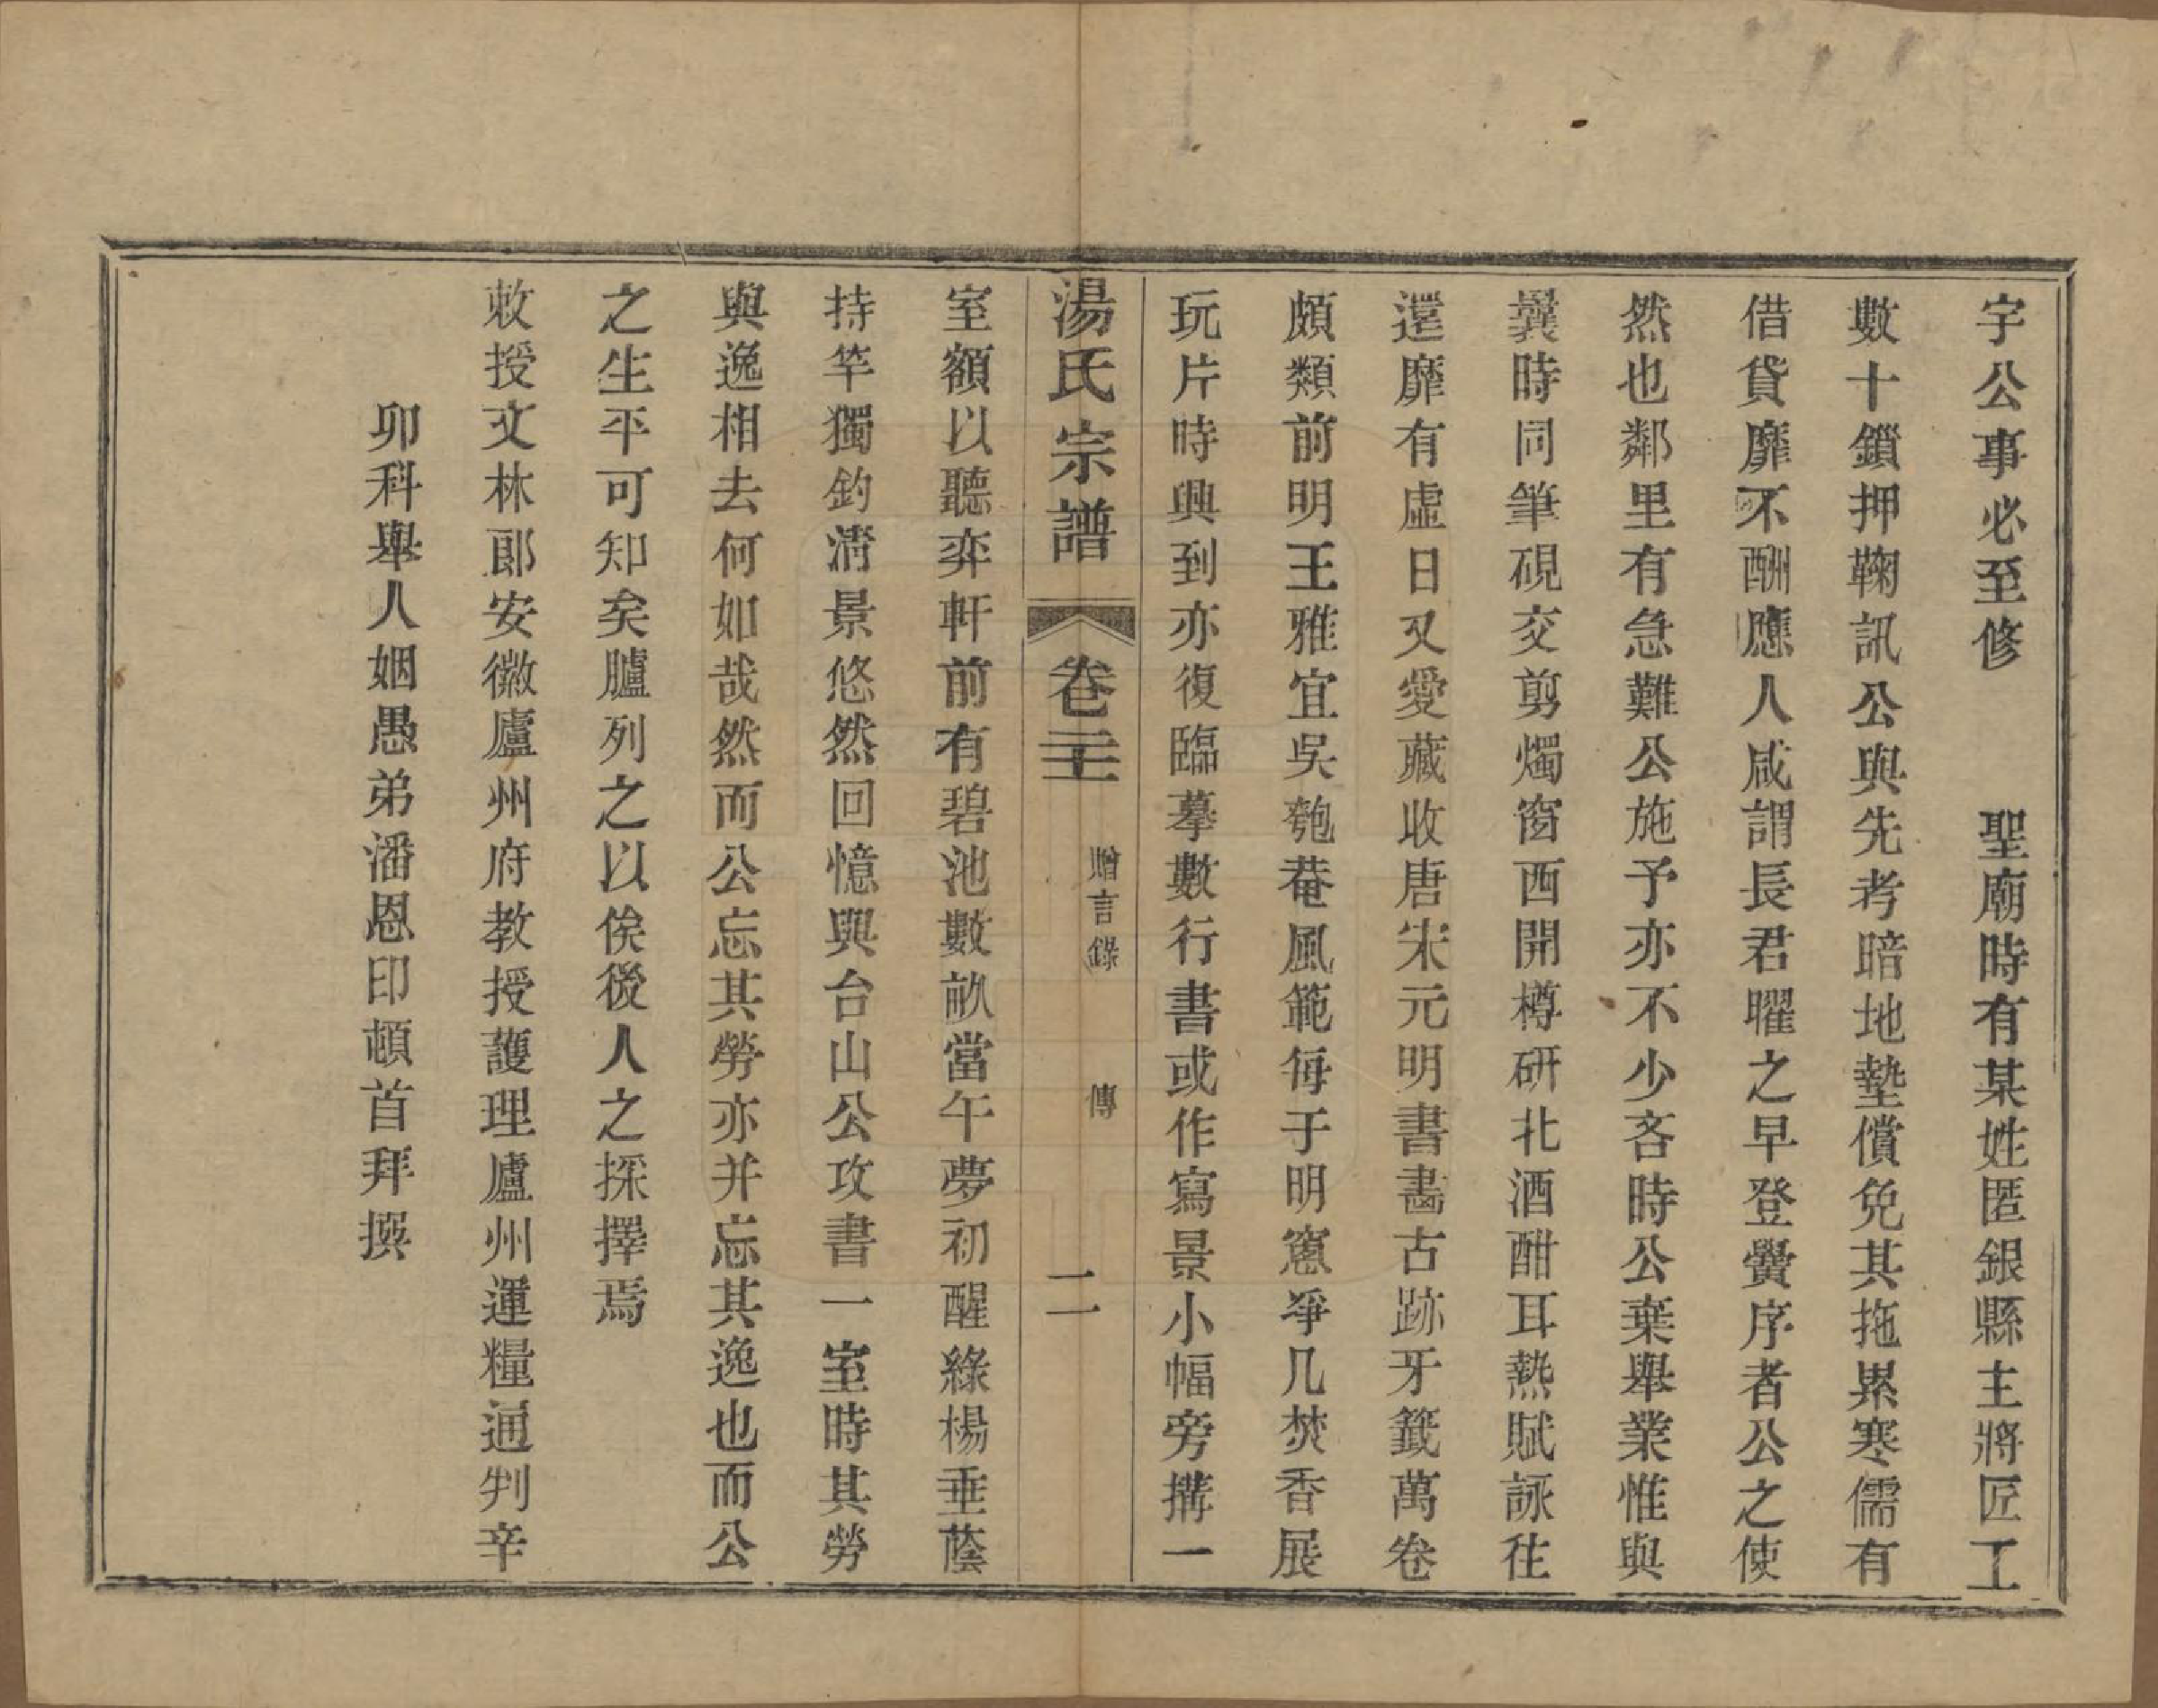 字公事必至修　　聖廟時有某姓匿銀縣主將匠工
數十鎖押鞠訊公與先考暗地墊償免其拖累寒儒有
借貸靡不酬應人咸謂長君曜之早登黌序者公之使
然也鄰里有急難公施予亦不少吝時公棄舉業惟與
曩時同筆硯交剪燭窗西開樽研北酒酣耳熱賦詠往
還靡有虛日又愛藏收唐宋元明書畵古跡牙籤萬卷
頗類前明王雅宜吳匏菴風範每于明窻爭几焚香展
玩片時興到亦復臨摹數行書或作寫景小幅旁搆一
湯氏宗譜　卷二十二　贈言錄　傳　二
室額以聽弈軒前有碧池數畝當午夢初醒綠楊垂蔭
持竿獨釣淸景悠然回憶與台山公攻書一室時其勞
與逸相去何如哉然而公忘其勞亦并忘其逸也而公
之生平可知矣臚列之以俟後人之採擇焉
敕授文林郎安徽廬州府教授護理廬州運糧通判辛
卯科舉人姻愚弟潘恩印頓首拜撰